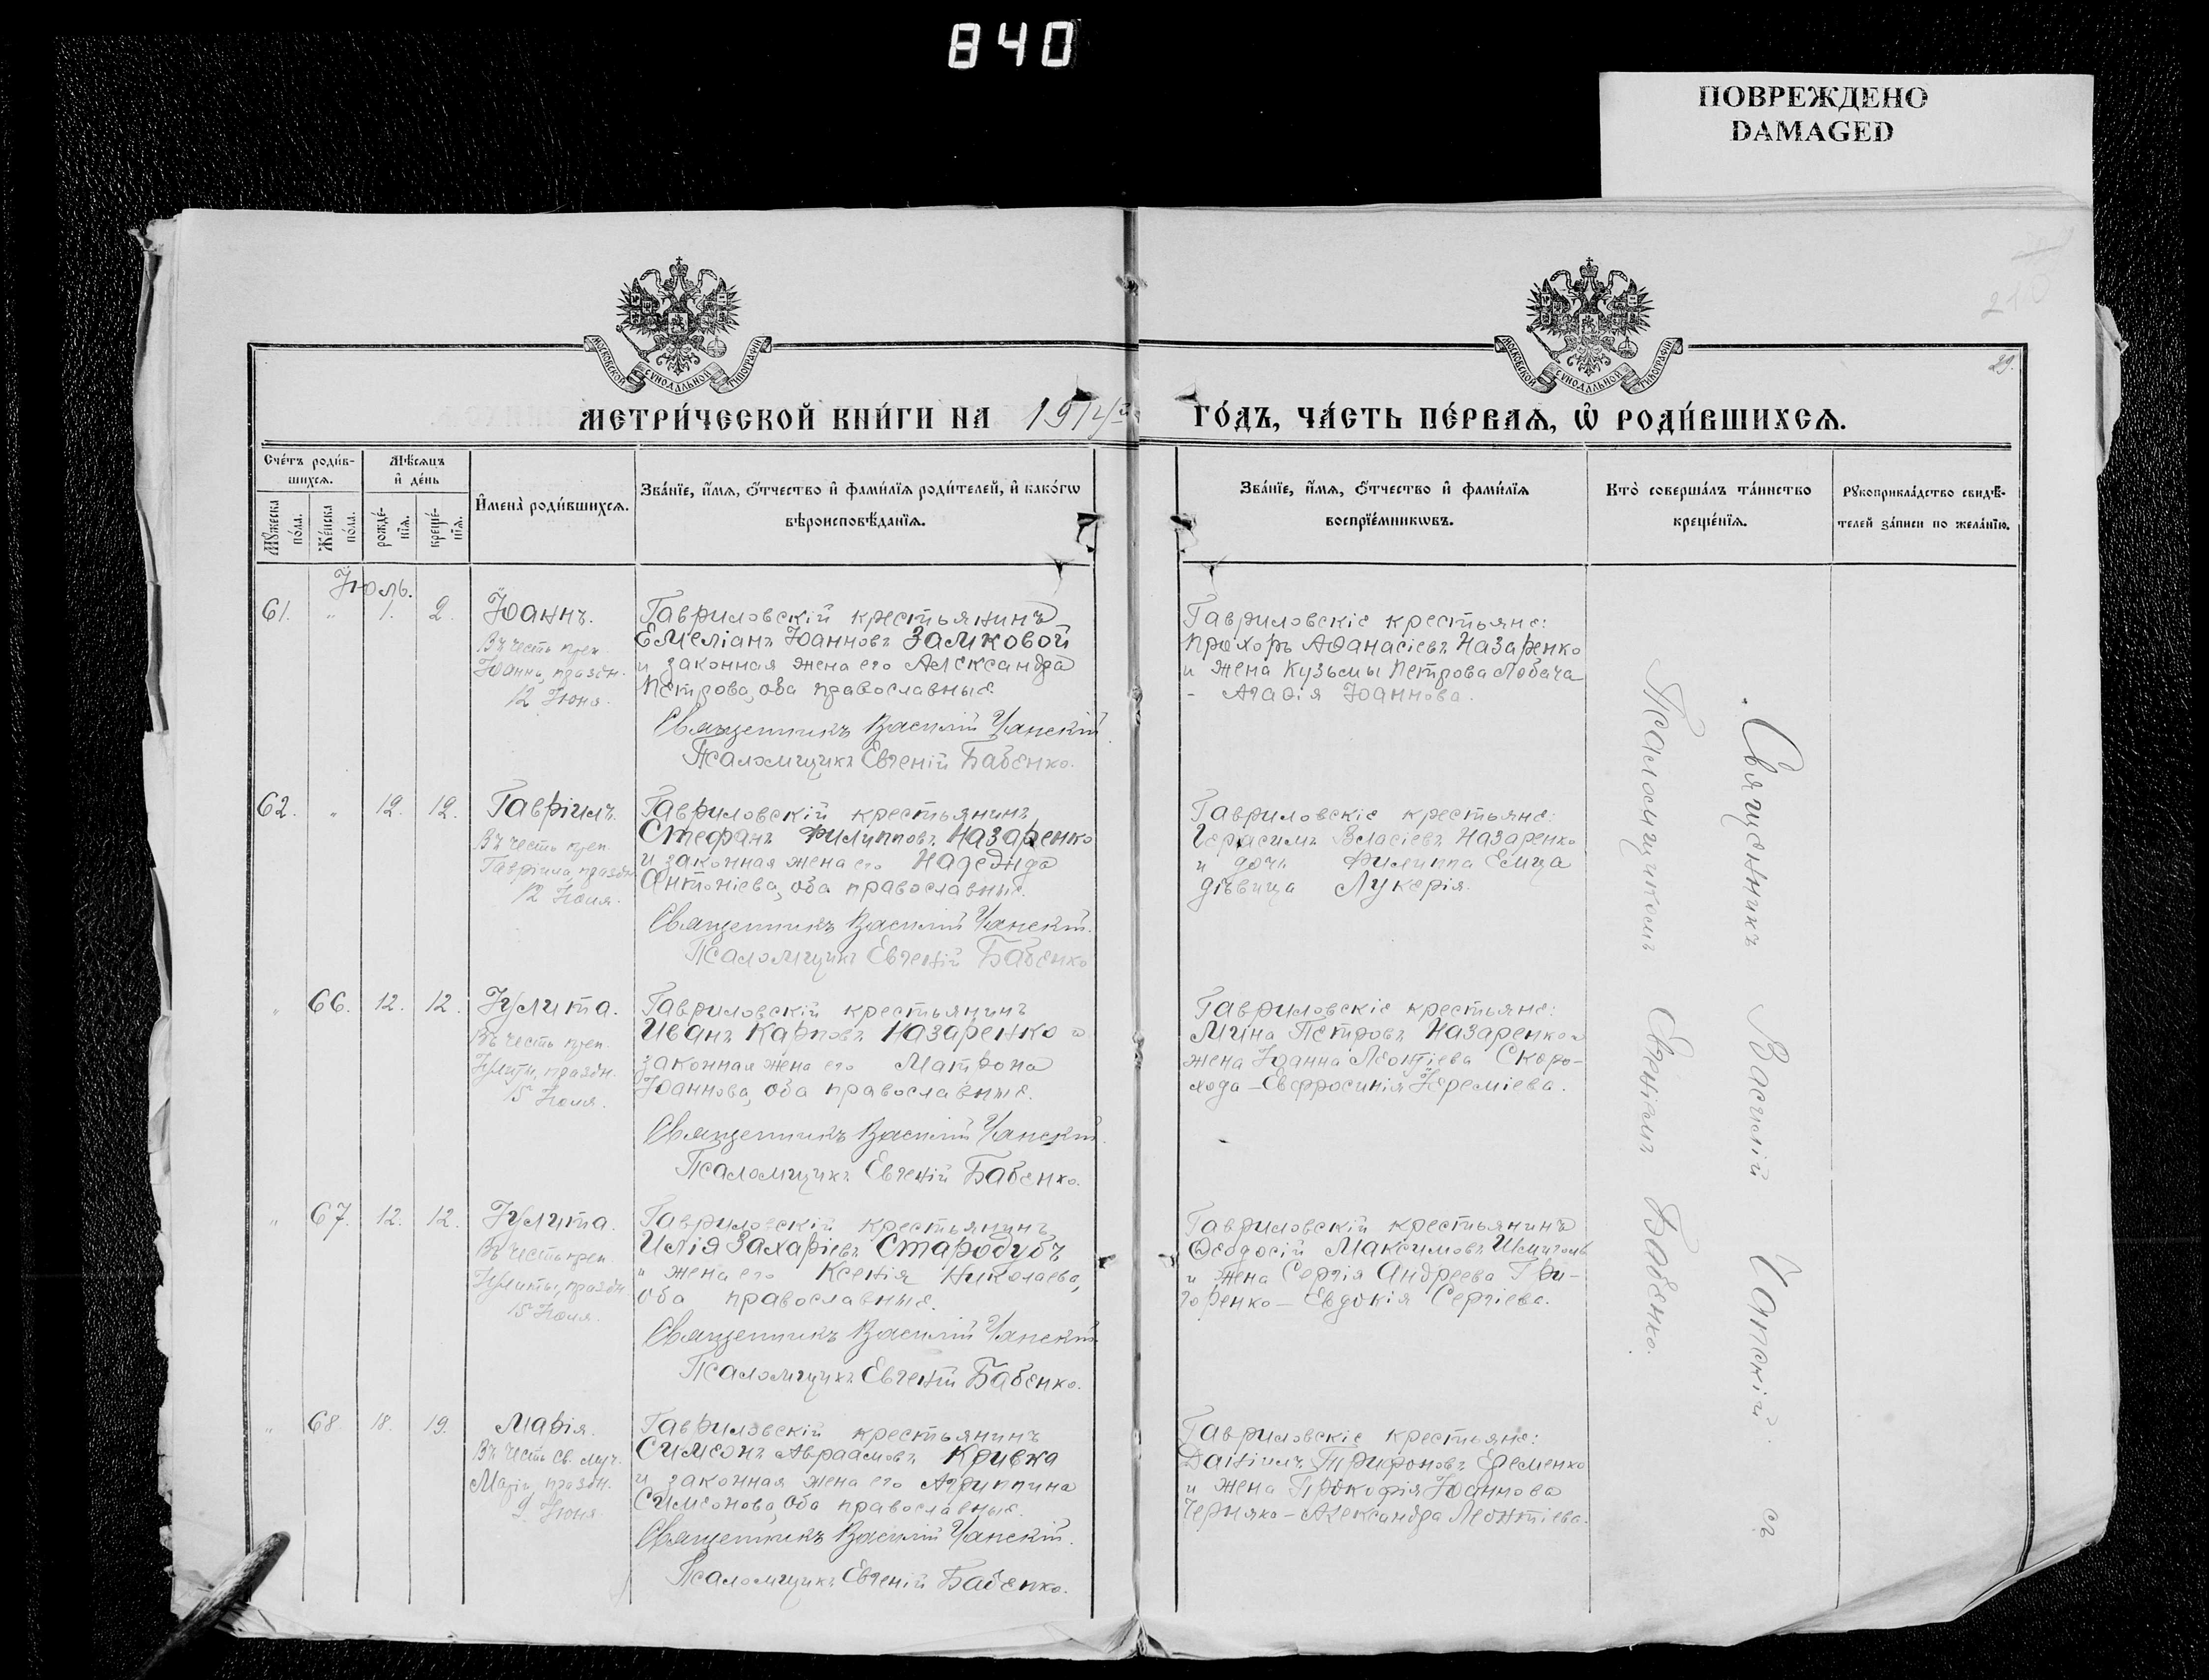 840
ПОВРЕЖДЕНО
DAMAGED
29.
МОСКОВСКОЙ СѴНОДАЛЬНОЙ ТИПОГРАФІИ
МОСКОВСКОЙ СѴНОДАЛЬНОЙ ТИПОГРАФІИ
МЕТРИ́ЧЕСКОЙ КНИ́ГИ НА 1914й
ГО́ДЪ, ЧА́СТЬ ПЕ́РВАѦ, Ѡ҆ РОДИ́ВШИХСѦ.
Сче́тъ роди́в-
шихсѧ.
Мѣ́сѧцъ
и҆ де́нь
Мꙋ́жеска по́ла.
Же́нска по́ла.
рожде́-
нїѧ.
креще́-
нїѧ.
И҆мена̀ роди́вшихсѧ.
Зва́нїе, и҆́мѧ, ѻ҆́тчество и҆ фами́лїѧ роди́телей, и҆ како́гѡ
вѣроисповѣ́данїѧ.
Зва́нїе, и҆́мѧ, ѻ҆́тчество и҆ фами́лїѧ
воспрїе́мникѡвъ.
Кто̀ соверша́лъ та́инство
креще́нїѧ.
Рꙋкоприкла́дство свидѣ́-
телей за́писи по жела́нїю.
Іюль.
61. " 1. 2. Іоаннъ.
Въ честь преп.
Іоанна, праздн.
12 Іюня.
Гавриловскій крестьянинъ
Емеліанъ Іоанновъ Замковой
и законная жена его Александра
Петрова, оба православные.
Священникъ Василій Чанскій.
Псаломщикъ Евгеній Бабенко.
Гавриловскіе крестьяне:
Прохоръ Аѳанасіевъ Назаренко
и жена Кузьмы Петрова Лобача
- Агаѳія Іоаннова.
62. " 12. 12. Гавріилъ.
Въ честь преп.
Гавріила, праздн.
12 Іюля.
Гавриловскій крестьянинъ
Стефанъ Филипповъ Назаренко
и законная жена его Надежда
Антоніева, оба православные.
Священникъ Василій Чанскій.
Псаломщикъ Евгеній Бабенко
Гавриловскіе крестьяне:
Герасимъ Власіевъ Назаренко
и дочь Филиппа Емца
дѣвица Лукерія.
" 66. 12. 12. Іулита.
Въ честь преп.
Іулиты, праздн.
15 Іюля.
Гавриловскій крестьянинъ
Иванъ Карповъ Назаренко и
законная жена его Матрона
Іоаннова, оба православные.
Священникъ Василій Чанскій.
Псаломщикъ Евгеній Бабенко.
Гавриловскіе крестьяне:
Мина Петровъ Назаренко и
жена Іоанна Леонтіева Скоро-
хода - Евфросинія Іереміева.
" 67. 12. 12. Іулита.
Въ честь преп.
Іулиты, праздн.
15 Іюля.
Гавриловскій крестьянинъ
Илія Захаріевъ Стародубъ
и жена его Ксенія Николаева,
оба православные.
Священникъ Василій Чанскій.
Псаломщикъ Евгеній Бабенко.
Гавриловскій крестьянинъ
Ѳеодосій Максимовъ Шмиголь
и жена Сергія Андреева Гри-
горенко - Евдокія Сергіева.
" 68. 18. 19. Марія.
Въ честь св. муч.
Маріи, праздн.
9 Іюня
Гавриловскій крестьянинъ
Симеонъ Авраамовъ Кривка
и законная жена его Агриппина
Симеонова, оба православные.
Священникъ Василій Чанскій.
Псаломщикъ Евгеній Бабенко.
Гавриловскіе крестьяне:
Даніилъ Трифоновъ Еременко
и жена Прокофія Іоаннова
Черняко - Александра Леонтіева.
Священникъ Василій Чанскій съ
Псаломщикомъ Евгеніемъ Бабенко.